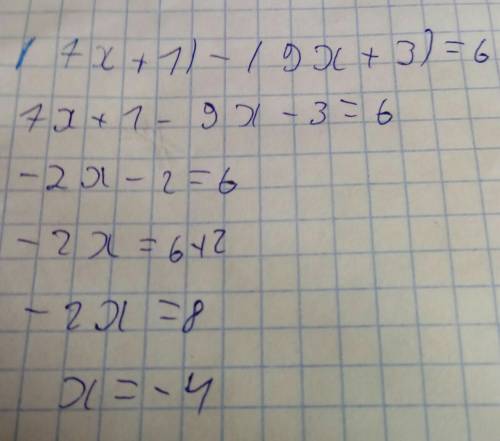 (7x+1)-(9x+3)=6
7x+1-9x-3=6
-2x-2=6
-2x=6+2
-2x=8
x=-4